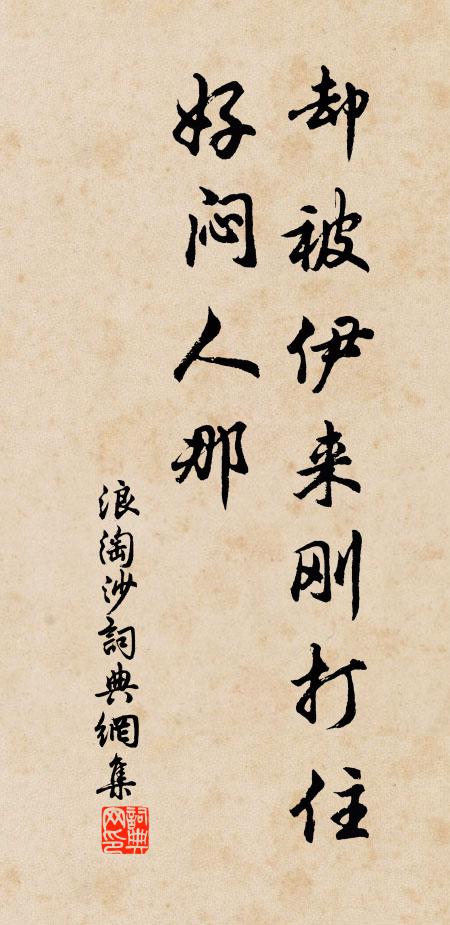 却被伊来刚打住
好闷人那
浪淘沙詞典網集
詞典网印